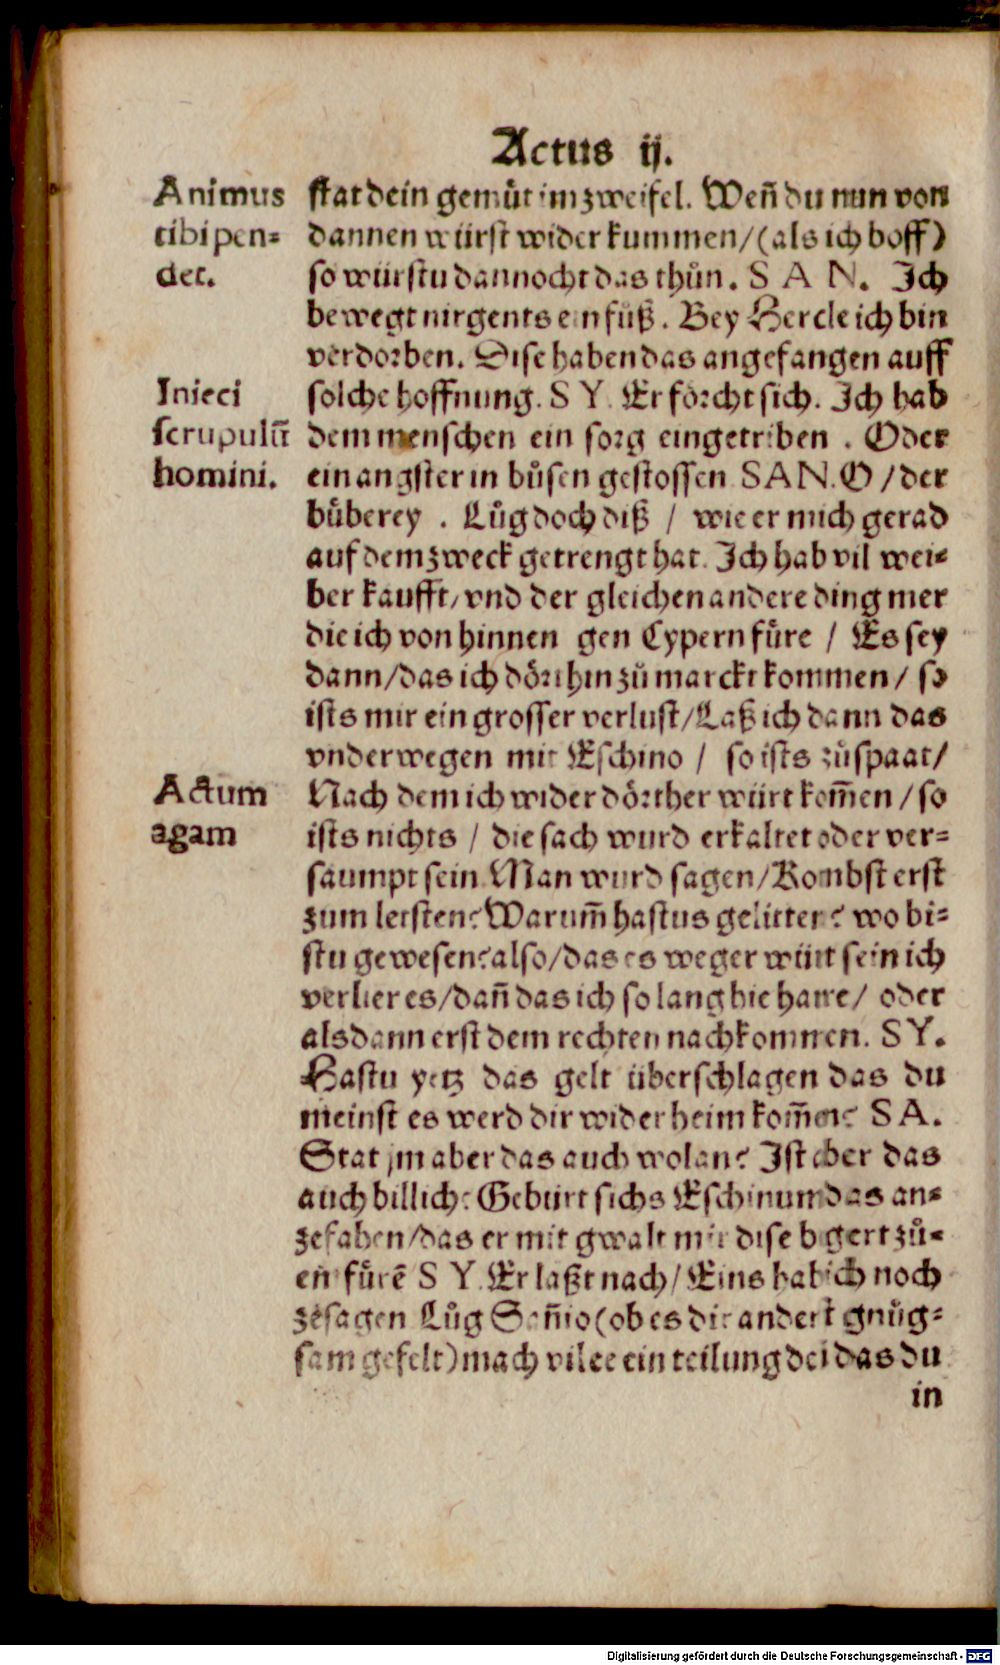 Actus ij.
Animus
tibi pen⸗
det.
stat dein gemüt im zweifel. Weñ du nun von
dannen würst wider kummen/(als ich hoff)
so würstu dannocht das thůn. S A N. Ich
bewegt nirgents ein fůß. Bey Hercle ich bin
verdorben. Dise haben das angefangen auff
Inieci
scrupulū
homini.
solche hoffnung. S Y. Er förcht sich. Ich hab
dem menschen ein sorg eingetriben . Oder
ein angster in bůsen gestossen SAN. O /der
bůberey . Lůg doch diß / wie er mich gerad
auf dem zweck getrengt hat. Ich hab vil wei⸗
ber kaufft/vnd der gleichen andere ding mer
die ich von hinnen gen Cypern fůre / Es sey
dann/das ich dört hin zů marckt kommen/ so
ists mir ein grosser verlust/Laß ich dann das
vnderwegen mit Eschino / so ists zůspaat/
Actum
agam
Nach dem ich wider dörther würt kom̄en /so
ists nichts / die sach wurd erkaltet oder ver⸗
saumpt sein Man wurd sagen/Kombst erst
zum letsten? Warum̄ hastus gelitten? wo bi⸗
stu gewesen? also/das es weger würt sein ich
verlier es/dañ das ich so lang hie harre/ oder
als dann erst dem rechten nachkommen. S Y.
Hastu yetz das gelt überschlagen das du
meinst es werd dir wider heim kom̄en? S A.
Stat jm aber das auch wolan? Ist aber das
auch billich? Gebürt sichs Eschinum das an⸗
zefahen/das er mit gwalt mir dise bgert zů⸗
en fürē S Y. Er laßt nach/ Eins hab ich noch
zesagen Lůg Sañio(ob es dir andert gnůg⸗
sam gefelt) mach vilee ein teilung dei das du
in
Digitalisierung gefördert durch die Deutsche Forschungsgemeinschaft - DFG